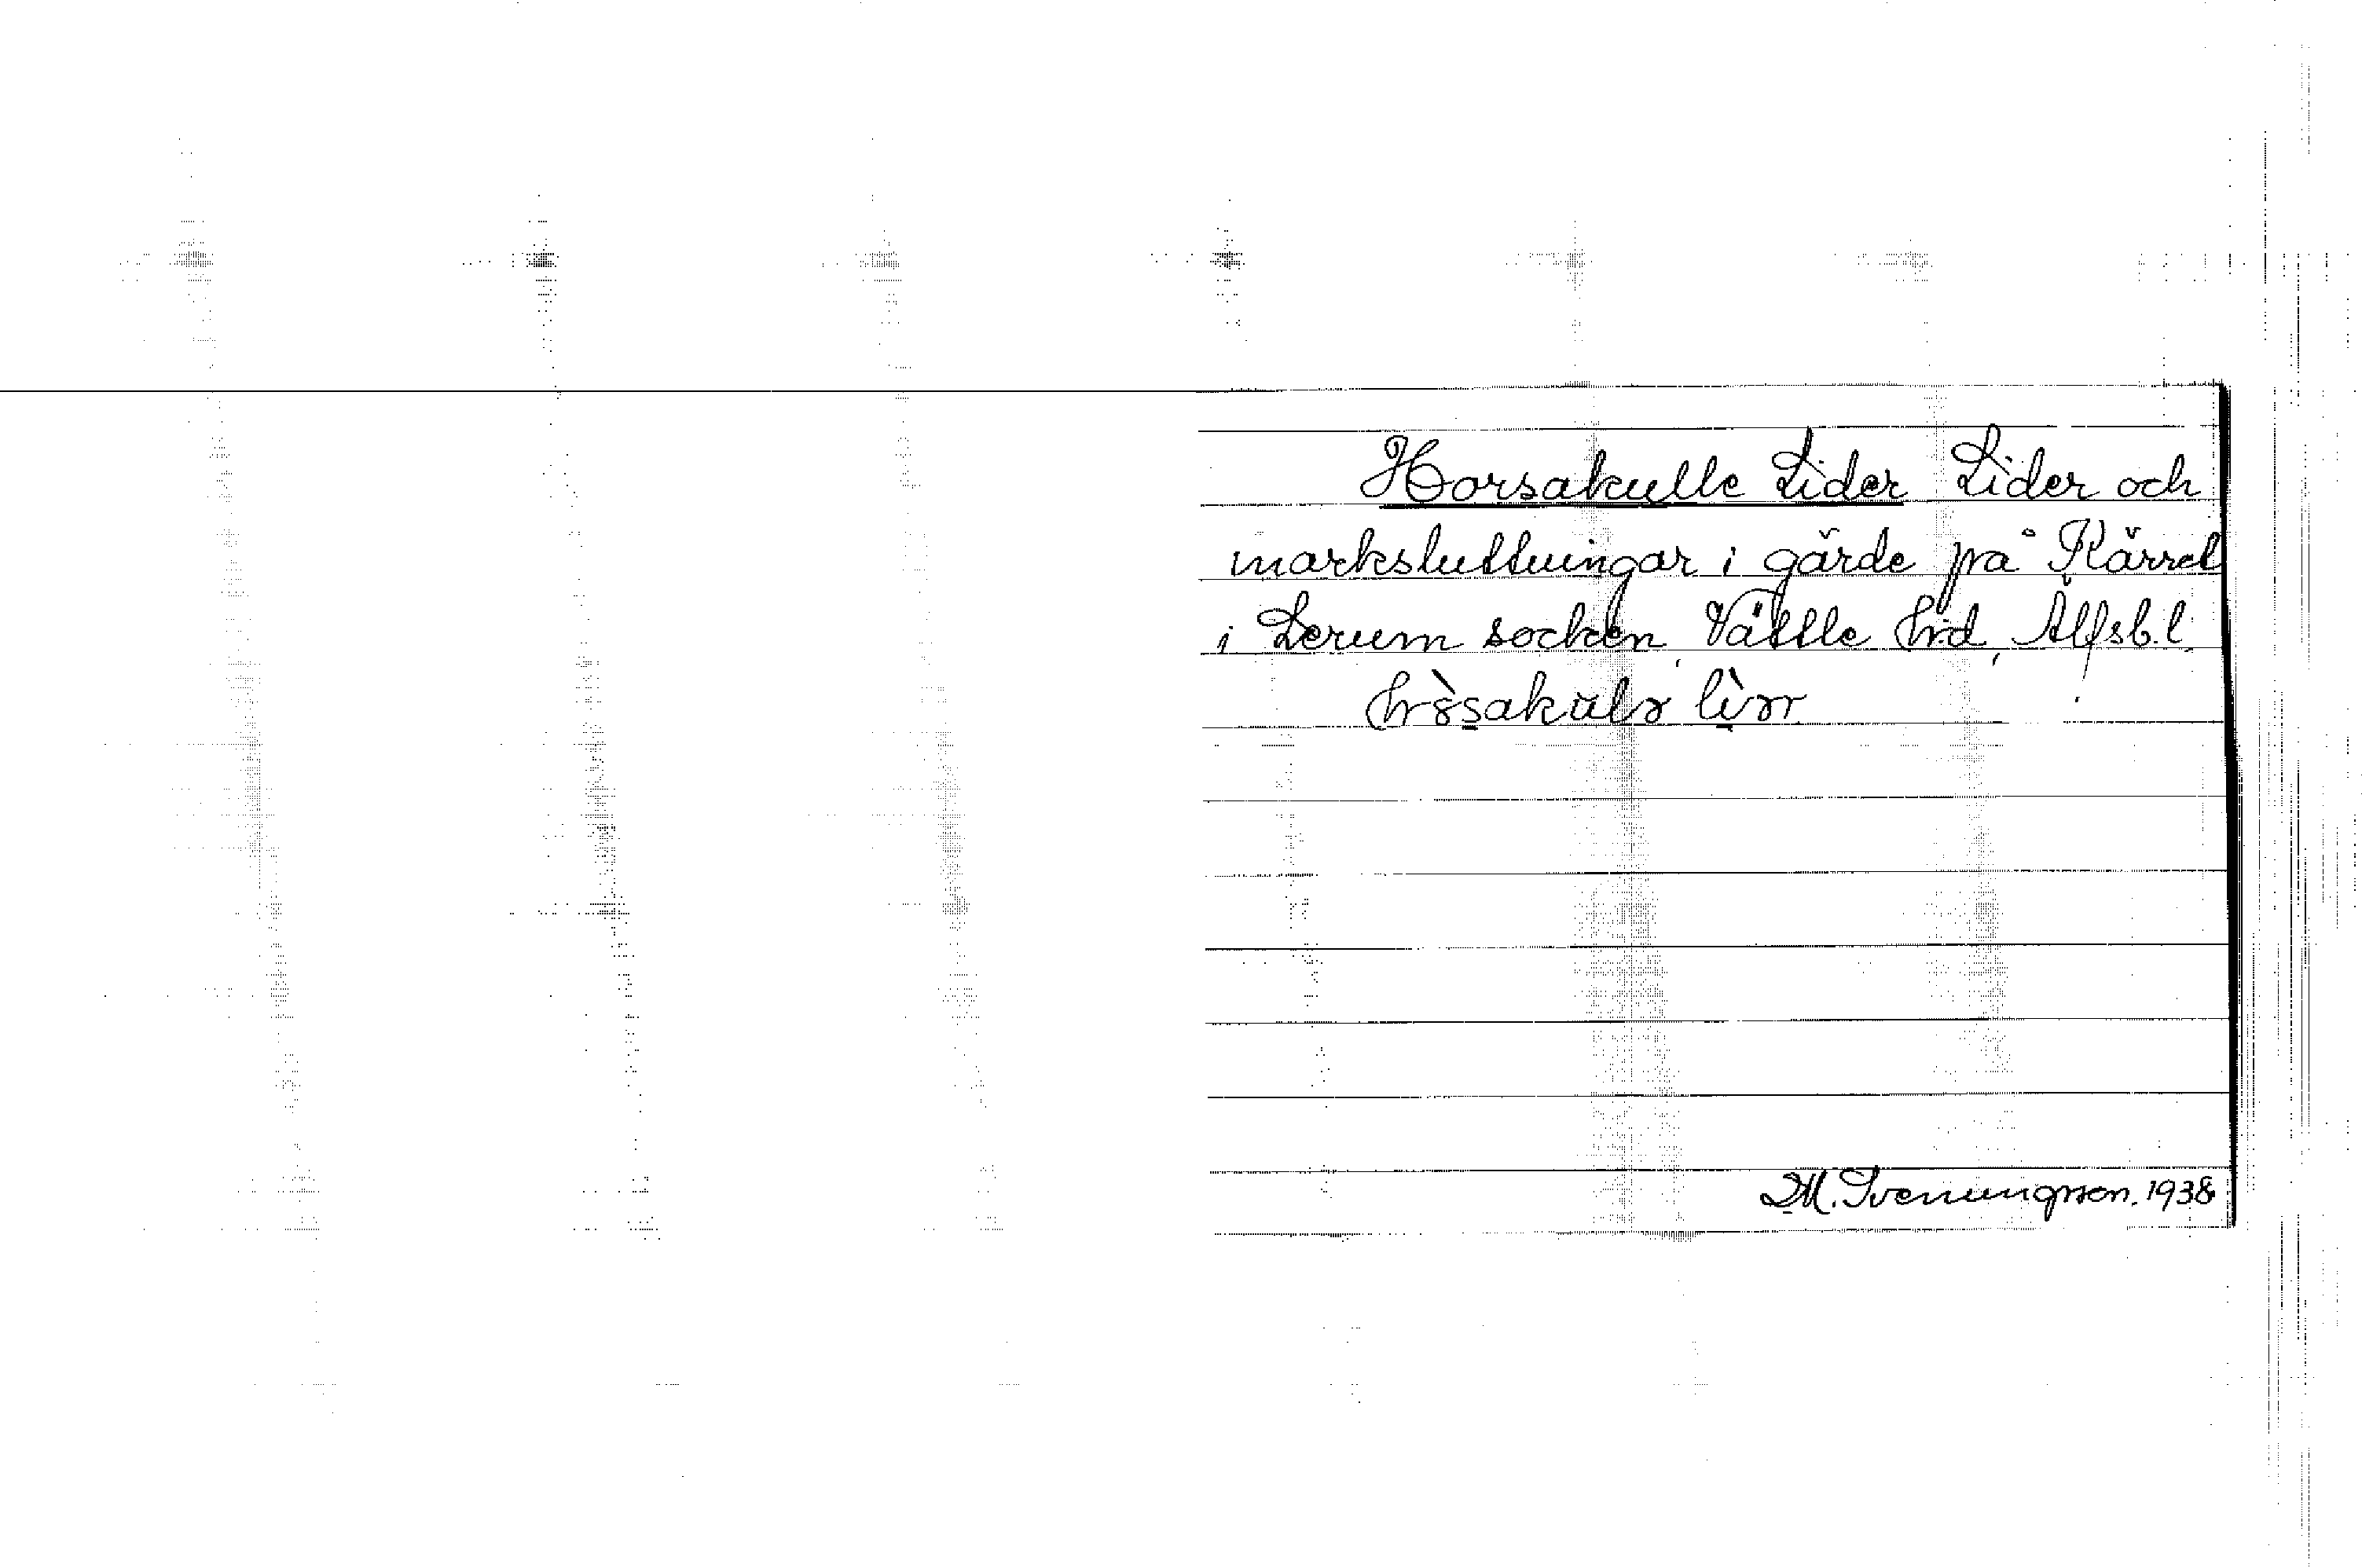 Horsakulle Lider Lider och
marksluttningar i gärde på Kärret
i Lerum socken, Vättle hrd, Älfsb.l.
M. Svenungsson. 1938